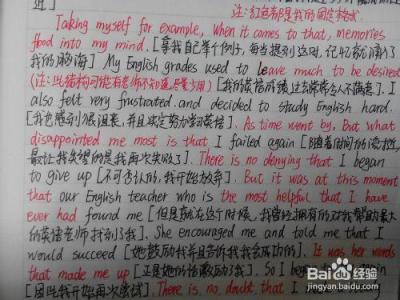 进]
注:红色部是我的固定格式.
Taking myself for example, When it comes to that, memories
flood into my mind. [拿我自己举个例子,每当提到这,记忆就涌入了
我的脑海] My English grades used to leave much to be desired
(注:此结构可能有老师不知道,尽量少用) [我的英语成绩过去常常令人不满意]. I
also felt very frustrated and decided to study English hard.
[我也感到很沮丧,并且决定努力学习英语]. As time went by, But what
disappointed me most is that I failed again [随着时间的流逝,
最让我失望的是我再次失败了]. There is no denying that I began
to give up [不可否认的,我开始放弃]. But it was at this moment
that our English teacher who is the most helpful that I have
ever had found me [但是就在这个时候,我曾经拥有的对我帮助最大
的英语老师找到了我]. She encouraged me and told me that I
would succeed [她鼓励我并且告诉我我会成功的]. It was her words
that made me up [正是她的话激励了我]. So I began again
[因此我开始再次尝试] There is no doubt that I
Baidu 经验